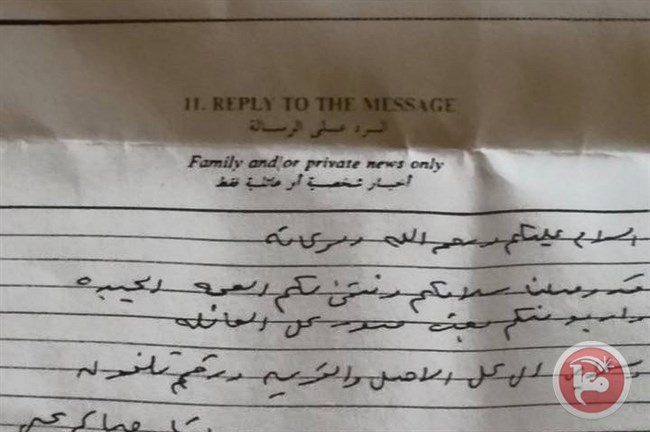 11. REPLY TO THE MESSAGE
الرد على الرسالة
Family and/or private news only
أخبار شخصية أو عائلية فقط
السلام عليكم ورحمة الله وبركاته
قد وصلنا سلامكم ونتمنى لكم الصحه الجيده
وارجو منكم بعث صور كل العائله
الى كل الاهل والقريه ورقم تلفون
معا